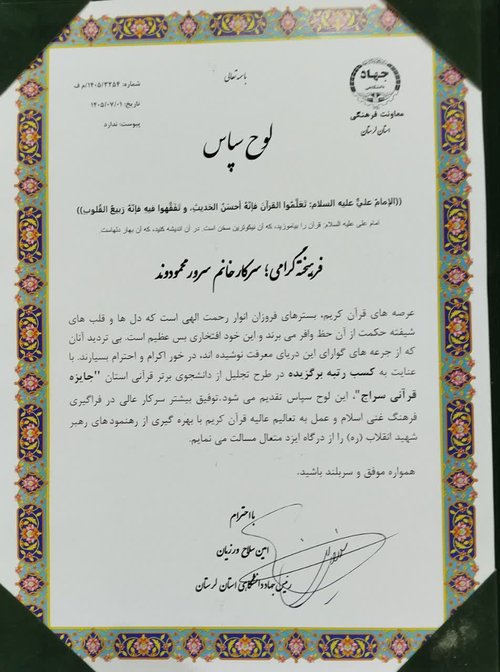 باسمه تعالی
جهاد
دانشگاهی
معاونت فرهنگی
استان لرستان
شماره: ۱۴۰۵/۳۲۵۴/م ف
تاریخ: ۱۴۰۵/۰۷/۰۱
پیوست: ندارد
لوح سپاس
((الإمامُ عليٌّ عليه السلام: تَعَلَّمُوا القرآنَ فَإنّهُ أحسَنُ الحَديثِ، و تَفَقَّهُوا فيهِ فإنّهُ رَبيعُ القُلوبِ))
امام علی علیه السلام: قرآن را بیاموزید، که آن نیکوترین سخن است. در آن اندیشه کنید، که آن بهار دلهاست.
فرهیخته گرامی؛ سرکار خانم سرور محمودوند
عرصه های قرآن کریم، بسترهای فروزان انوار رحمت الهی است که دل ها و قلب های
شیفته حکمت از آن حظ وافر می برند و این خود افتخاری بس عظیم است. بی تردید آنان
که از جرعه های گوارای این دریای معرفت نوشیده اند، در خور اکرام و احترام بسیارند. با
عنایت به کسب رتبه برگزیده در طرح تجلیل از دانشجوی برتر قرآنی استان "جایزه
قرآنی سراج"، این لوح سپاس تقدیم می شود. توفیق بیشتر سرکار عالی در فراگیری
فرهنگ غنی اسلام و عمل به تعالیم عالیه قرآن کریم با بهره گیری از رهنمودهای رهبر
شهید انقلاب (ره) را از درگاه ایزد متعال مسالت می نمایم.
همواره موفق و سربلند باشید.
با احترام
امین سلاح ورزیان
رئیس جهاد دانشگاهی استان لرستان